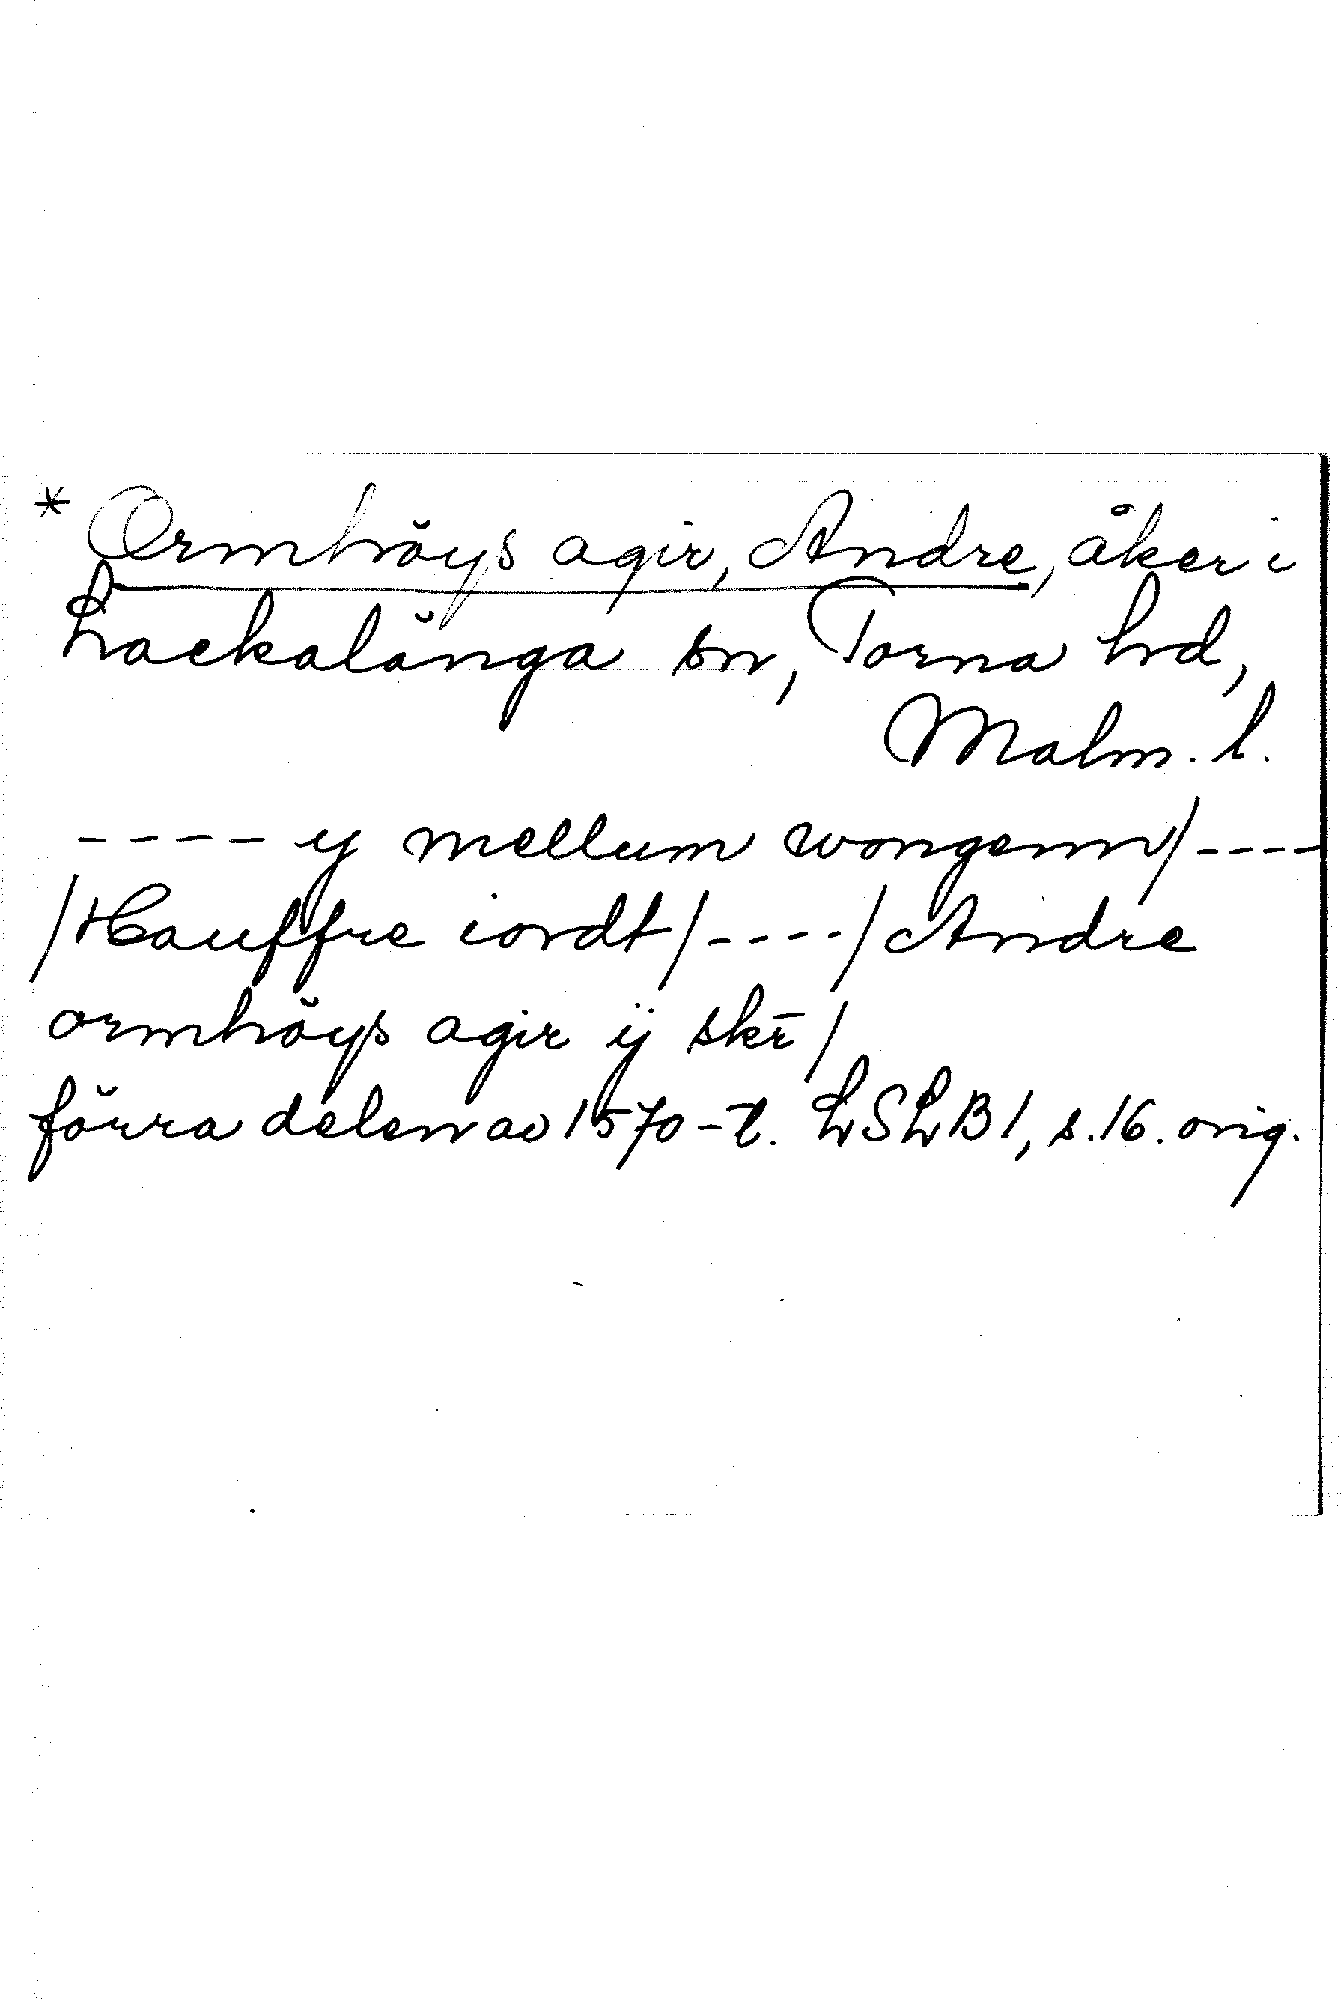 * Ormhöys agir, Andre, åker i
Lackalänga sn, Torna hd,
Malm. l.
---- y mellum wongenn/----
/Hauffre iordt/----/Andre
ormhöys agir ij skr̄/
förra delen av 1570-t. LSLB1, s.16. orig.